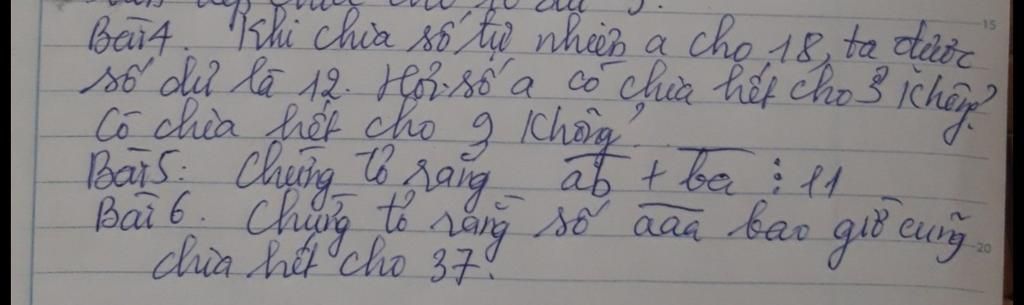 Bài 4. Khi chia số tự nhiên a cho 18, ta được
số dư là 12. Hỏi số a có chia hết cho 3 không?
Có chia hết cho 9 không?
Bài 5: Chứng tỏ rằng ab + ba ⋮ 11
Bài 6. Chứng tỏ rằng số aaa bao giờ cũng
chia hết cho 37.